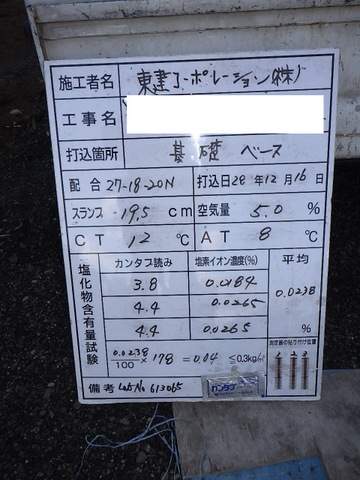 施工者名 東建コーポレーション(株)
工事名
打込箇所 基礎 ベース
配合 27-18-20N 打込日 28年12月16日
スランプ 19.5 cm 空気量 5.0 %
CT 12 ℃ AT 8 ℃
塩化物含有量試験 カンタブ読み 塩素イオン濃度(%) 平均
3.8 0.0184
4.4 0.0265 0.0238
4.4 0.0265 %
0.0238/100 × 178 = 0.04 ≦0.3kg/㎥ 測定器の貼り付け位置
1 2 3
備考 Lot No 613065 カンタブ